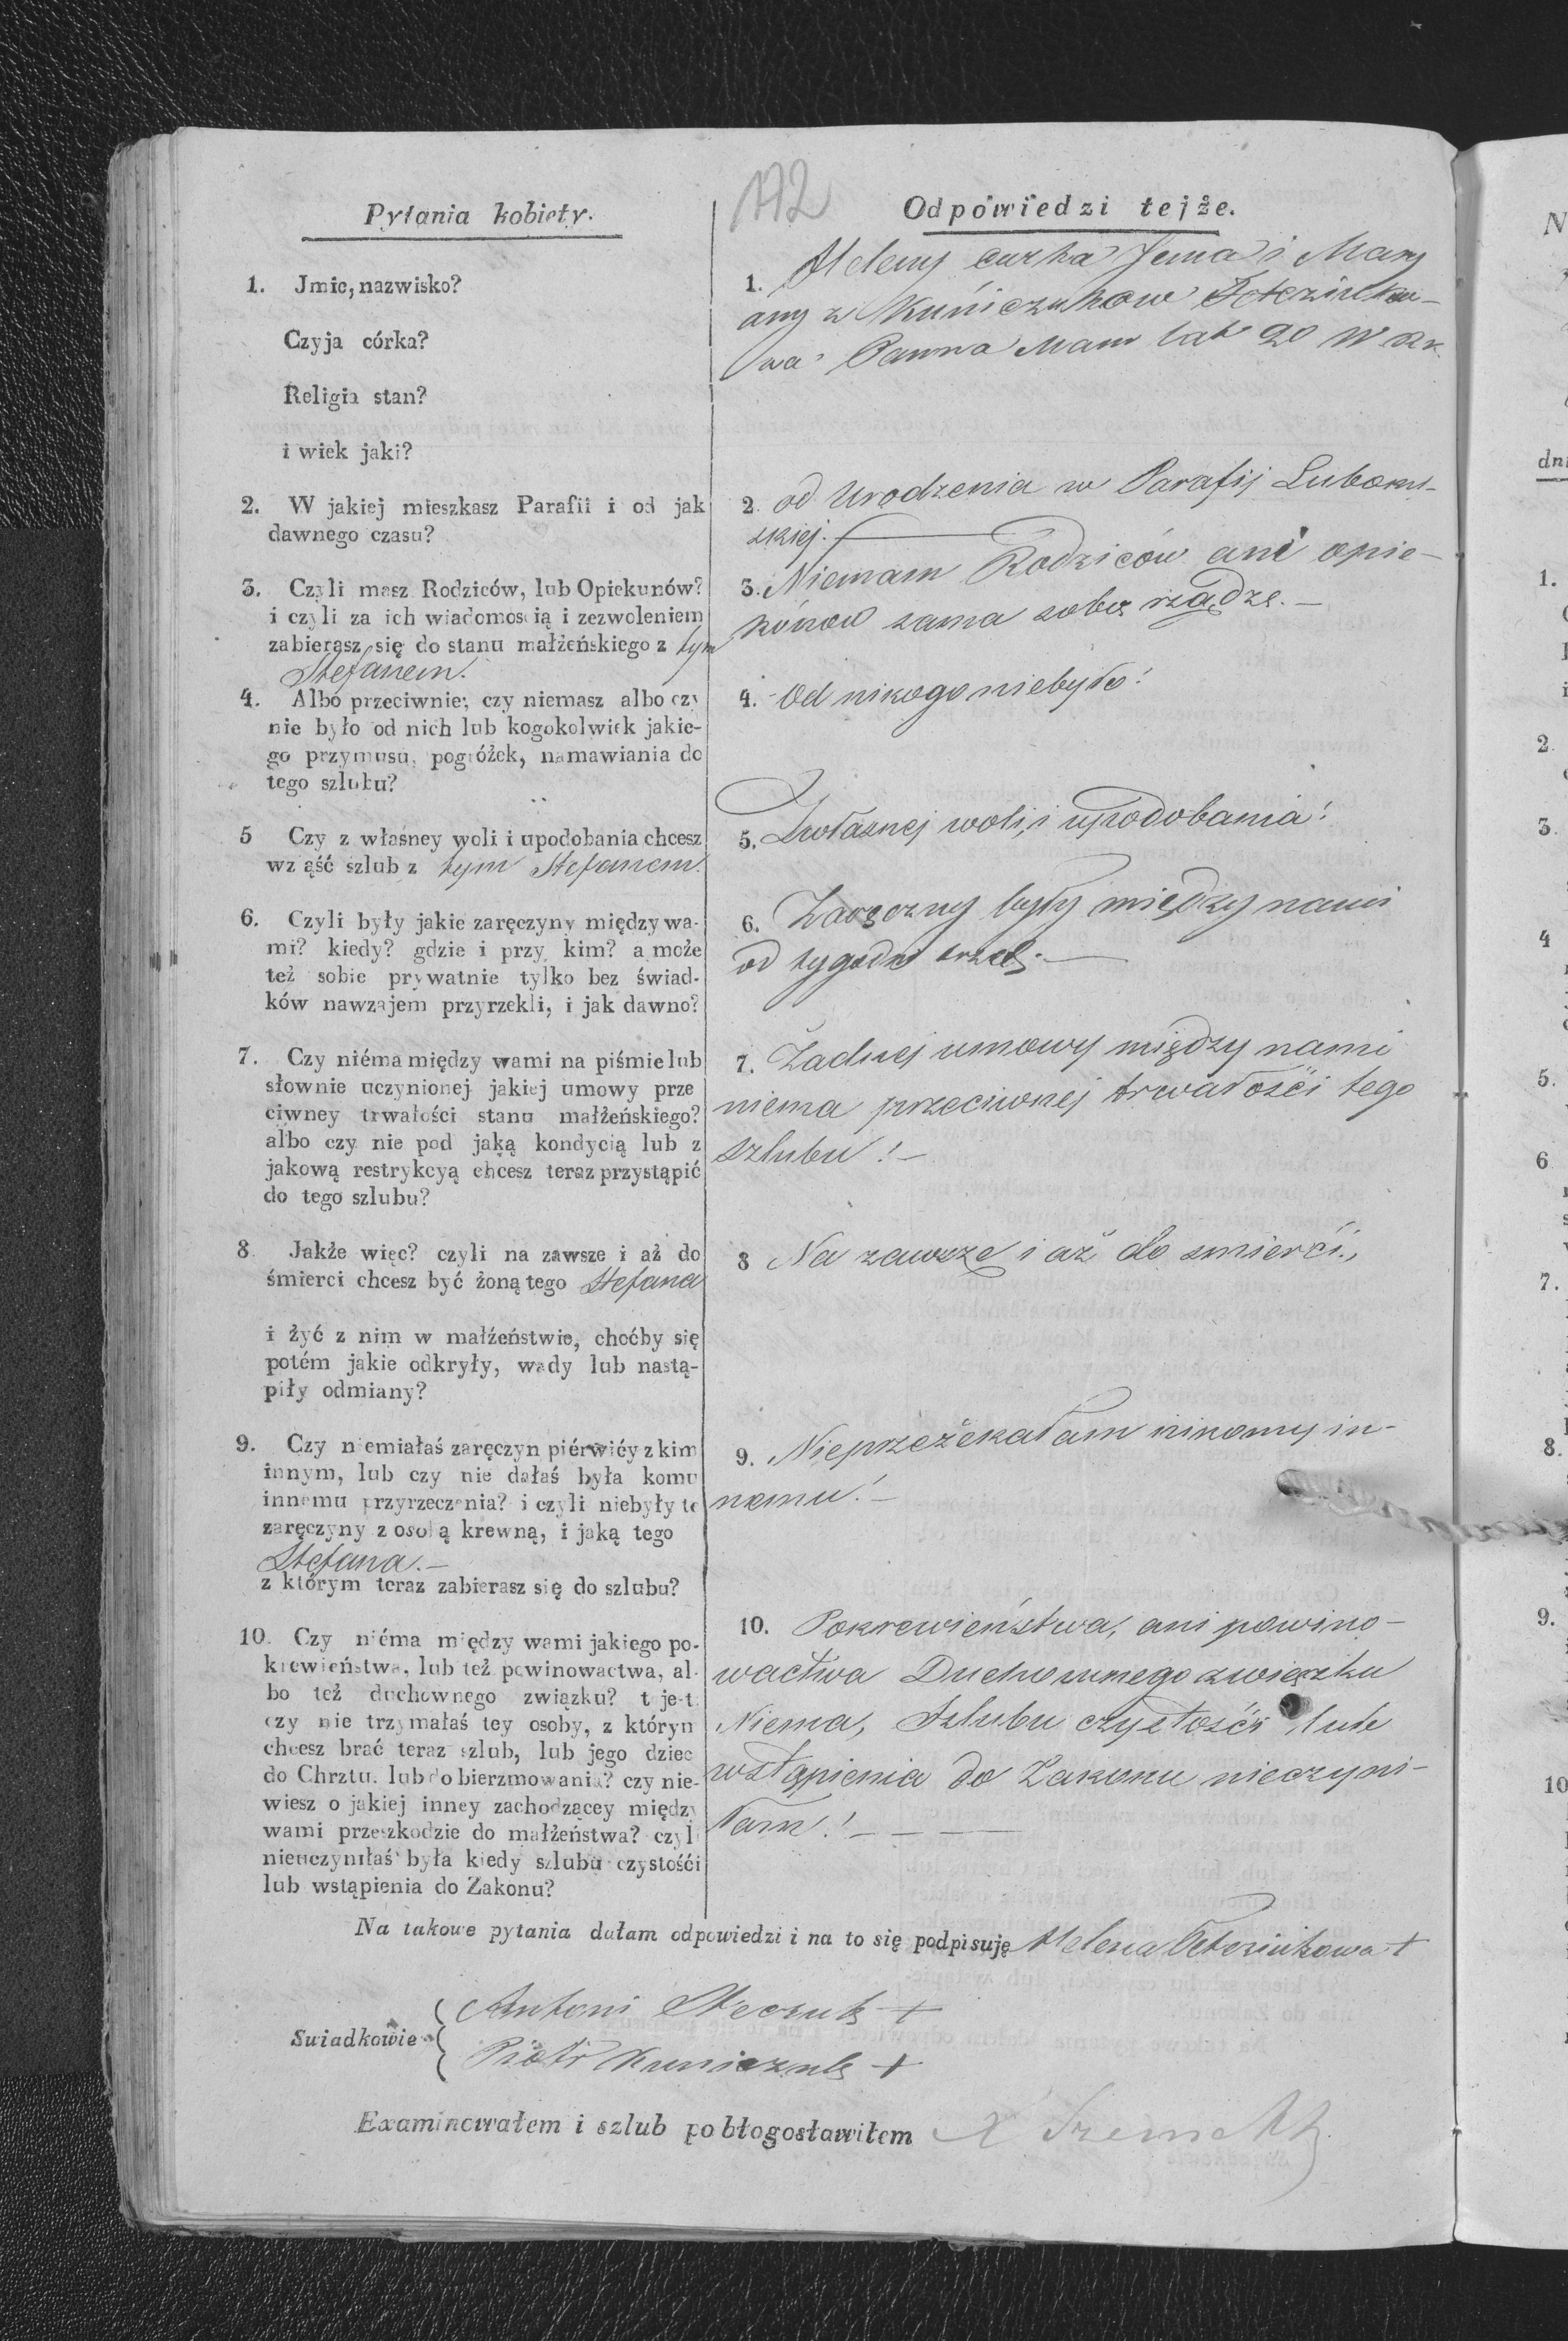 172
Pytania kobiety.
Odpowiedzi tejże.
1. Jmie, nazwisko?
Czyja córka?
Religia stan?
i wiek jaki?
1. Heleny curka Jana i Mary
any z Kuńiczukow
wa Panna Mam lat 20 W Rk
2. W jakiej mieszkasz Parafii i od jak
dawnego czasu?
2. od Urodzenia w Parafij Luboms-
kiej.
3. Czyli masz Rodziców, lub Opiekunów?
i czyli za ich wiadomością i zezwoleniem
zabierasz się do stanu małżeńskiego z tym
Stefanem.
3. Niemam Rodziców ani opie-
kónow sama sobą rządzę.—
4. Albo przeciwnie; czy niemasz albo czy
nie było od nich lub kogokolwiek jakie-
go przymusu, pogróżek, namawiania do
tego szlubu?
4. Od nikogo niebyło!
5 Czy z własney woli i upodobania chcesz
wziąść szlub z tym Stefanem.
5. Zwłasnej woli, i upodobania!
6. Czyli były jakie zaręczyny między wa-
mi? kiedy? gdzie i przy kim? a może
też sobie prywatnie tylko bez świad-
ków nawzajem przyrzekli, i jak dawno?
6. Zaręczny były między nami
od tygodni trzech.—
7. Czy niéma między wami na piśmie lub
słownie uczynionej jakiej umowy prze
ciwney trwałości stanu małżeńskiego?
albo czy nie pod jaką kondycią lub z
jakową restrykcyą chcesz teraz przystąpić
do tego szlubu?
7. Żadnej umowy między nami
niema przeciwnej trwałości tego
szlubu!—
8. Jakże więc? czyli na zawsze i aż do
śmierci chcesz być żoną tego Stefana
i żyć z nim w małżeństwie, choćby się
potém jakie odkryły, wady lub nastą-
piły odmiany?
8 Na zawsze i aż do smierći.
9. Czy niemiałaś zaręczyn piérwiéy z kim
innym, lub czy nie dałaś była komu
innemu przyrzeczenia? i czyli niebyły te
zaręczyny z osobą krewną, i jaką tego
Stefana.—
z którym teraz zabierasz się do szlubu?
9. Nieprzeżekałam nikomy in-
nemu!—
10. Czy niéma między wami jakiego po-
krewieństwa, lub też powinowactwa, al-
bo też duchownego związku? t jest
czy nie trzymałaś tey osoby, z którym
chcesz brać teraz szlub, lub jego dziec
do Chrztu, lub do bierzmowania? czy nie-
wiesz o jakiej inney zachodzącey między
wami przeszkodzie do małżeństwa? czyli
nieuczyniłaś była kiedy szlubu czystośći
lub wstąpienia do Zakonu?
10. Pokrewieństwa, ani powino-
wactwa Duchownego zwięzku
Niema, Szlubu czystośći lub
wstąpienia do Zakonu nieczyni-
łam!—
Na takowe pytania dałam odpowiedzi i na to się podpisuję Helena +
Swiadkowie
Antoni +
Piotr Kuniczuk +
Examinowałem i szlub pobłogosławiłem X
N
dni
1.
2.
3.
4
5.
6
7.
8.
9.
10